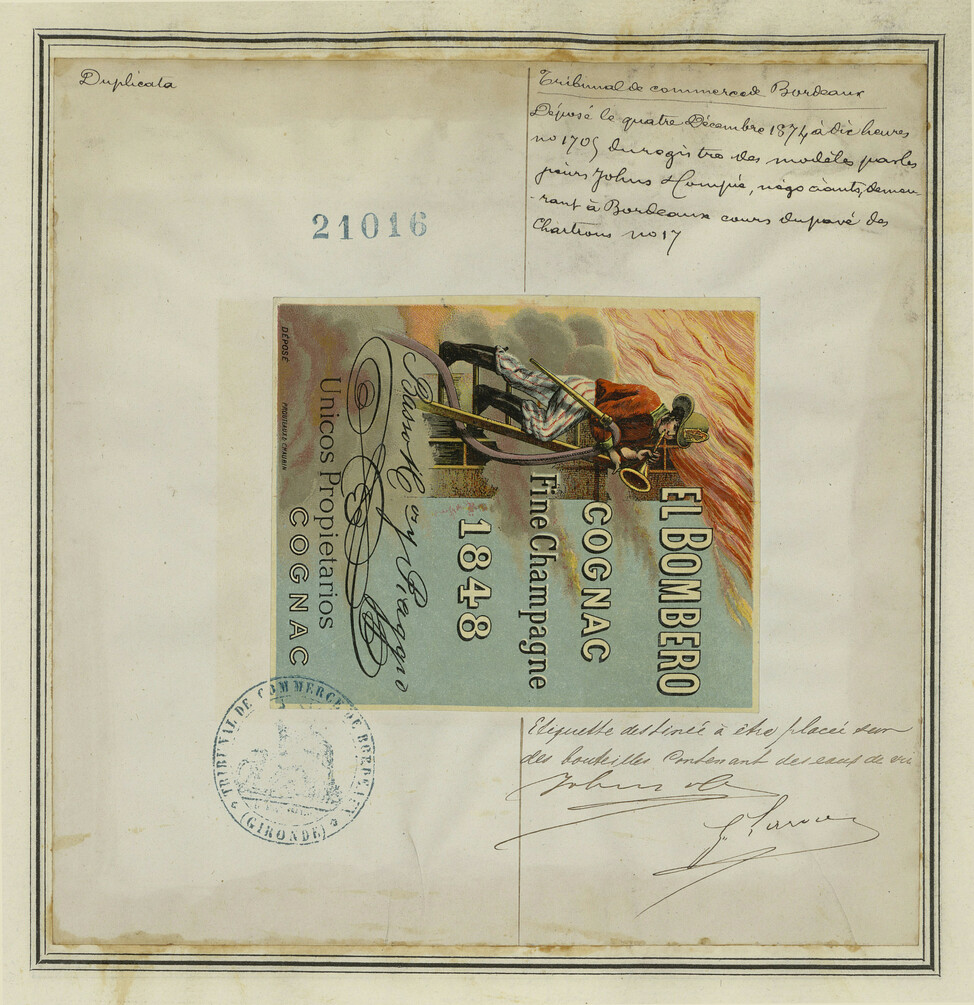 Duplicata
Tribunal de commerce de Bordeaux
Déposé le quatre Décembre 1874 à dix heures
no 1705 du registre des modèles par les
sieurs Johns &amp; Compie, négociants, demeu-
-rant à Bordeaux cours du pavé des
Chartrons no 17
21016
EL BOMBERO
COGNAC
Fine Champagne
1848
Unicos Propietarios
COGNAC
DÉPOSÉ
Etiquette destinée à être placée sur
des bouteilles contenant des eaux de vie
TRIBUNAL DE COMMERCE DE BORDEAUX
(GIRONDE)